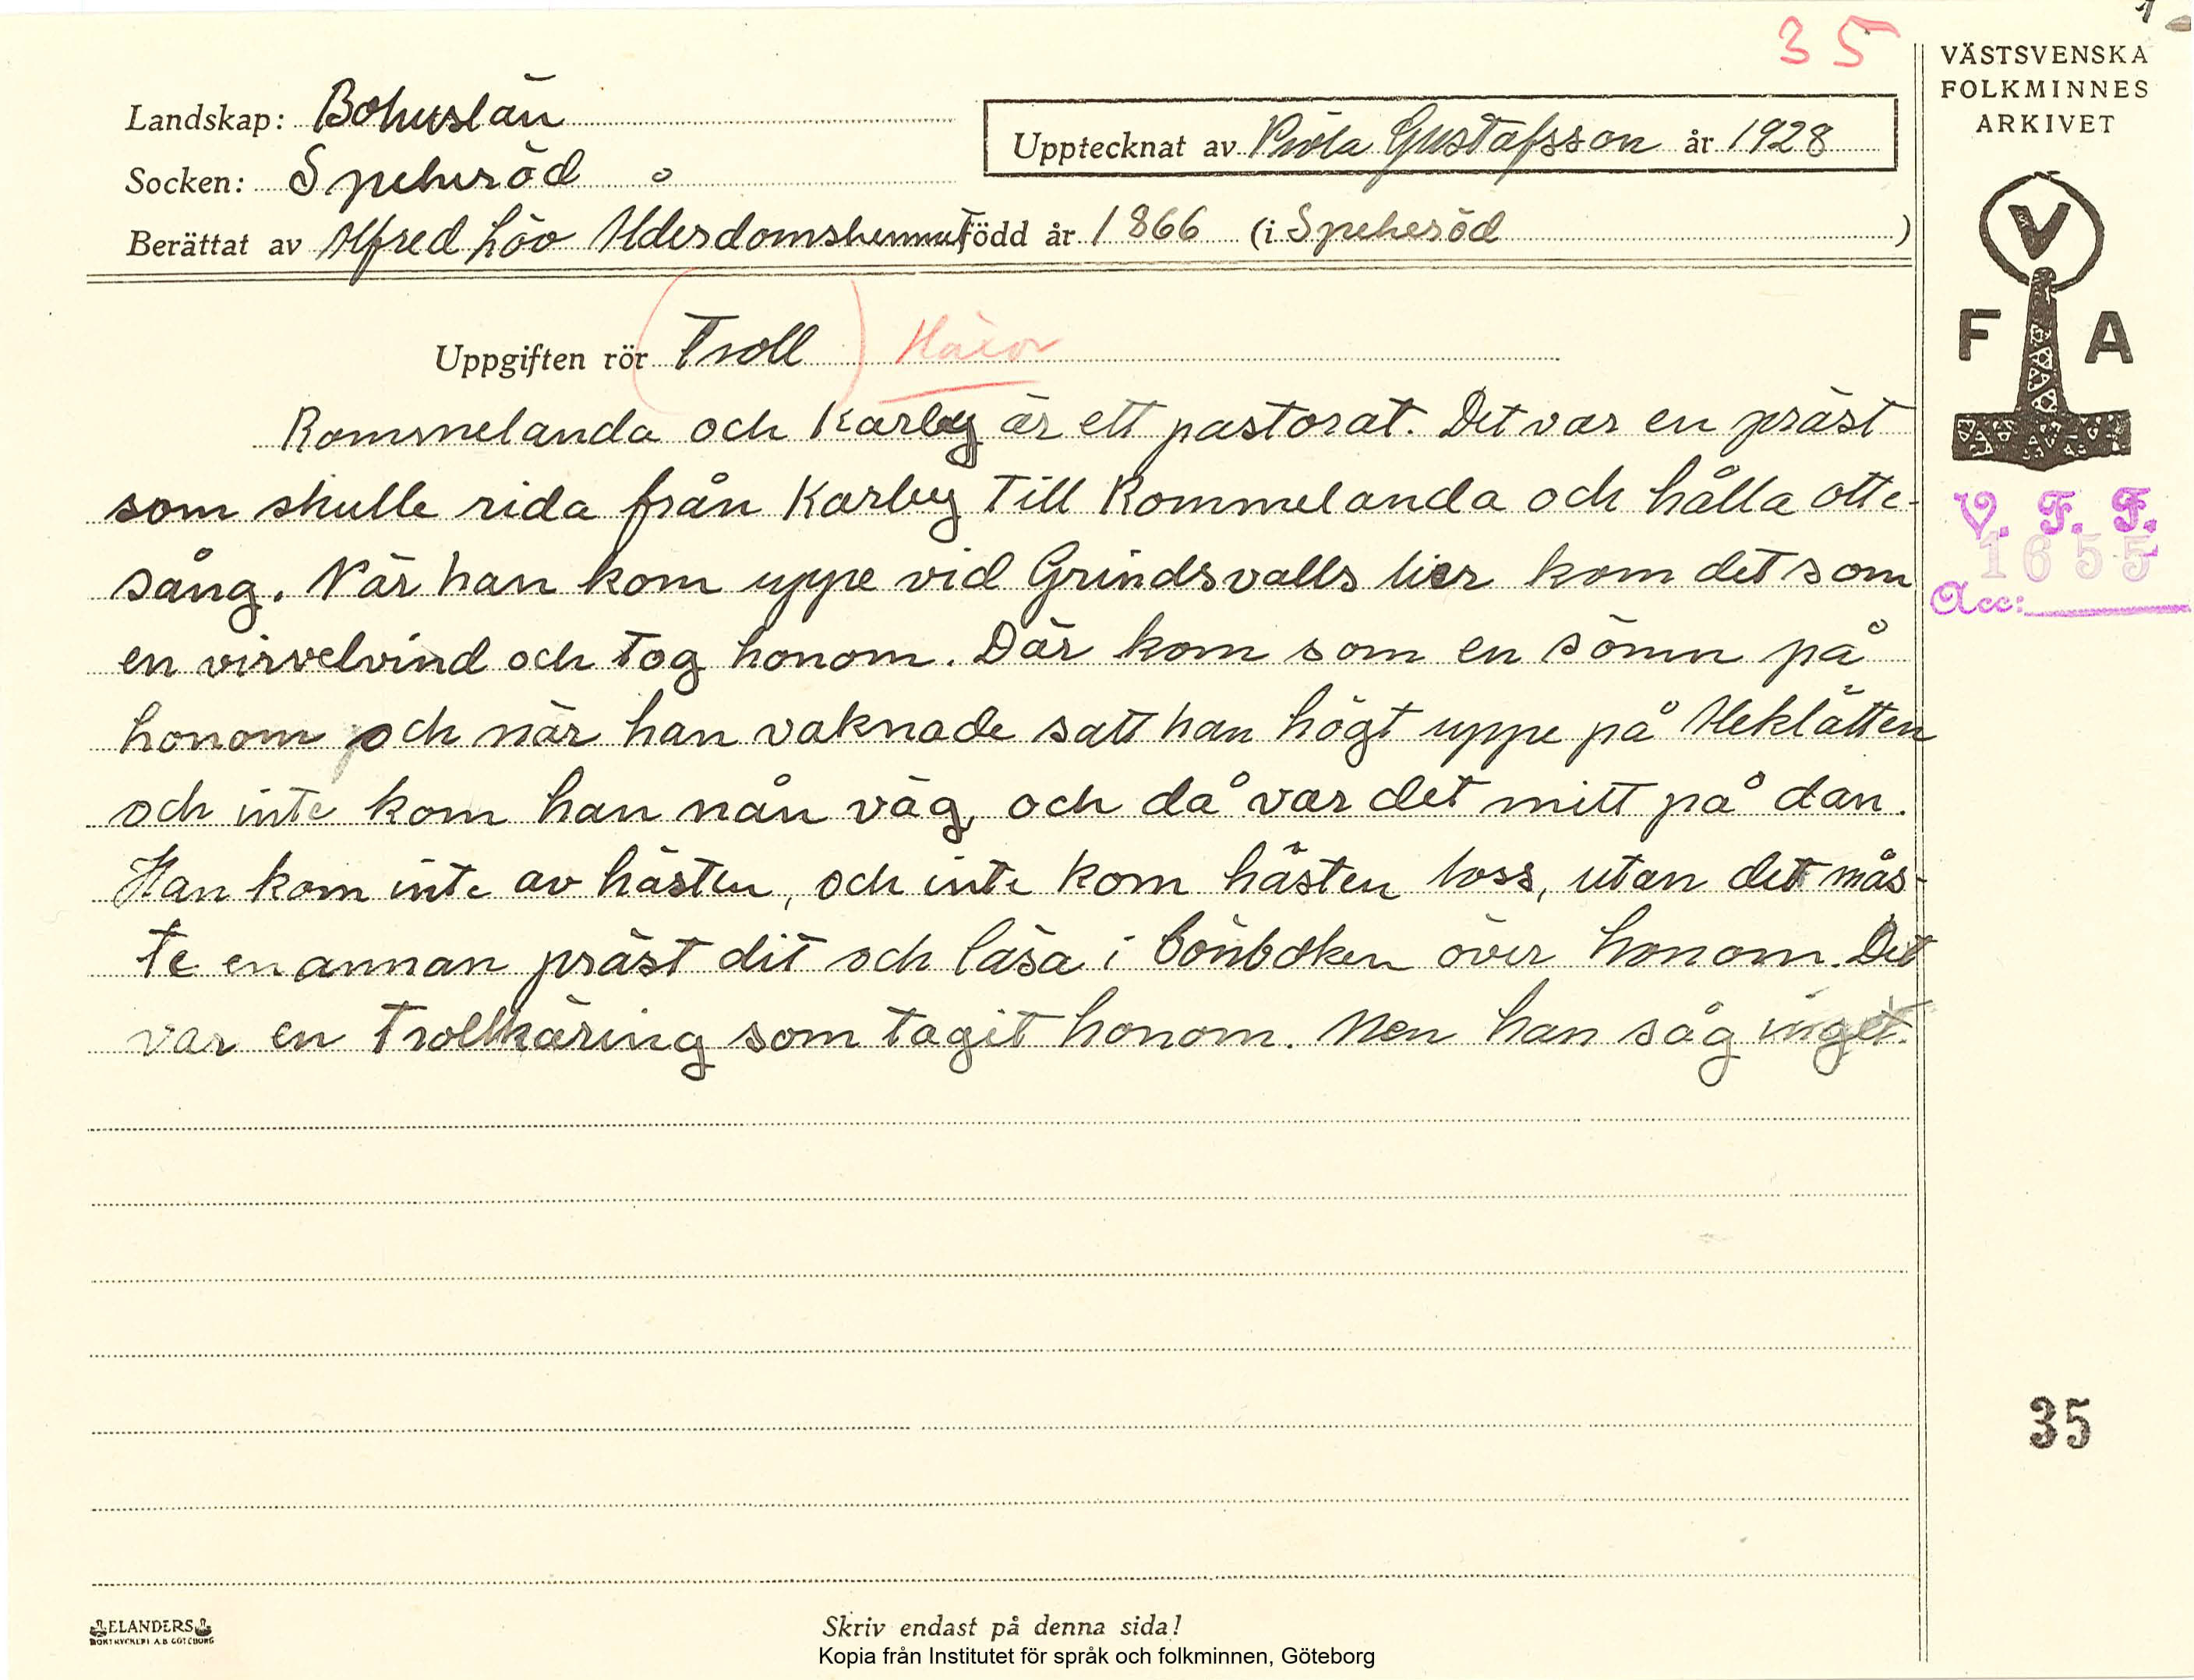 35
VÄSTSVENSKA
FOLKMINNES
ARKIVET
Landskap: Bohuslän
Upptecknat av Viola Gustafsson år 1928
Socken: Spekeröd
Berättat av Alfred Löv Ålderdomshemmet Född år 1866 (i Spekeröd)
V
F A
Uppgiften rör (Troll) Häxor
Rommelanda och Kareby är ett pastorat. Det var en präst
som skulle rida från Kareby till Rommelanda och hålla otte-
sång. När han kom uppe vid Grindsvalls lier kom det som
en virvelvind och tog honom. Där kom som en sömn på
honom och när han vaknade satt han högt uppe på
och inte kom han nån väg, och då var det mitt på dan.
Han kom inte av hästen, och inte kom hästen loss, utan det mås-
te en annan präst dit och läsa i bönboken över honom. Det
var en trollkäring som tagit honom. Men han såg inget.
V. F. F.
1655
Acc:
35
ELANDERS
BOKTRYCKERI A.B. GÖTEBORG
Skriv endast på denna sida!
Kopia från Institutet för språk och folkminnen, Göteborg